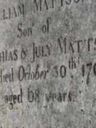 LLIAM MATTSON
Son of
HIAS & JULY MATTS
ied October 30th 170
aged 68 years.